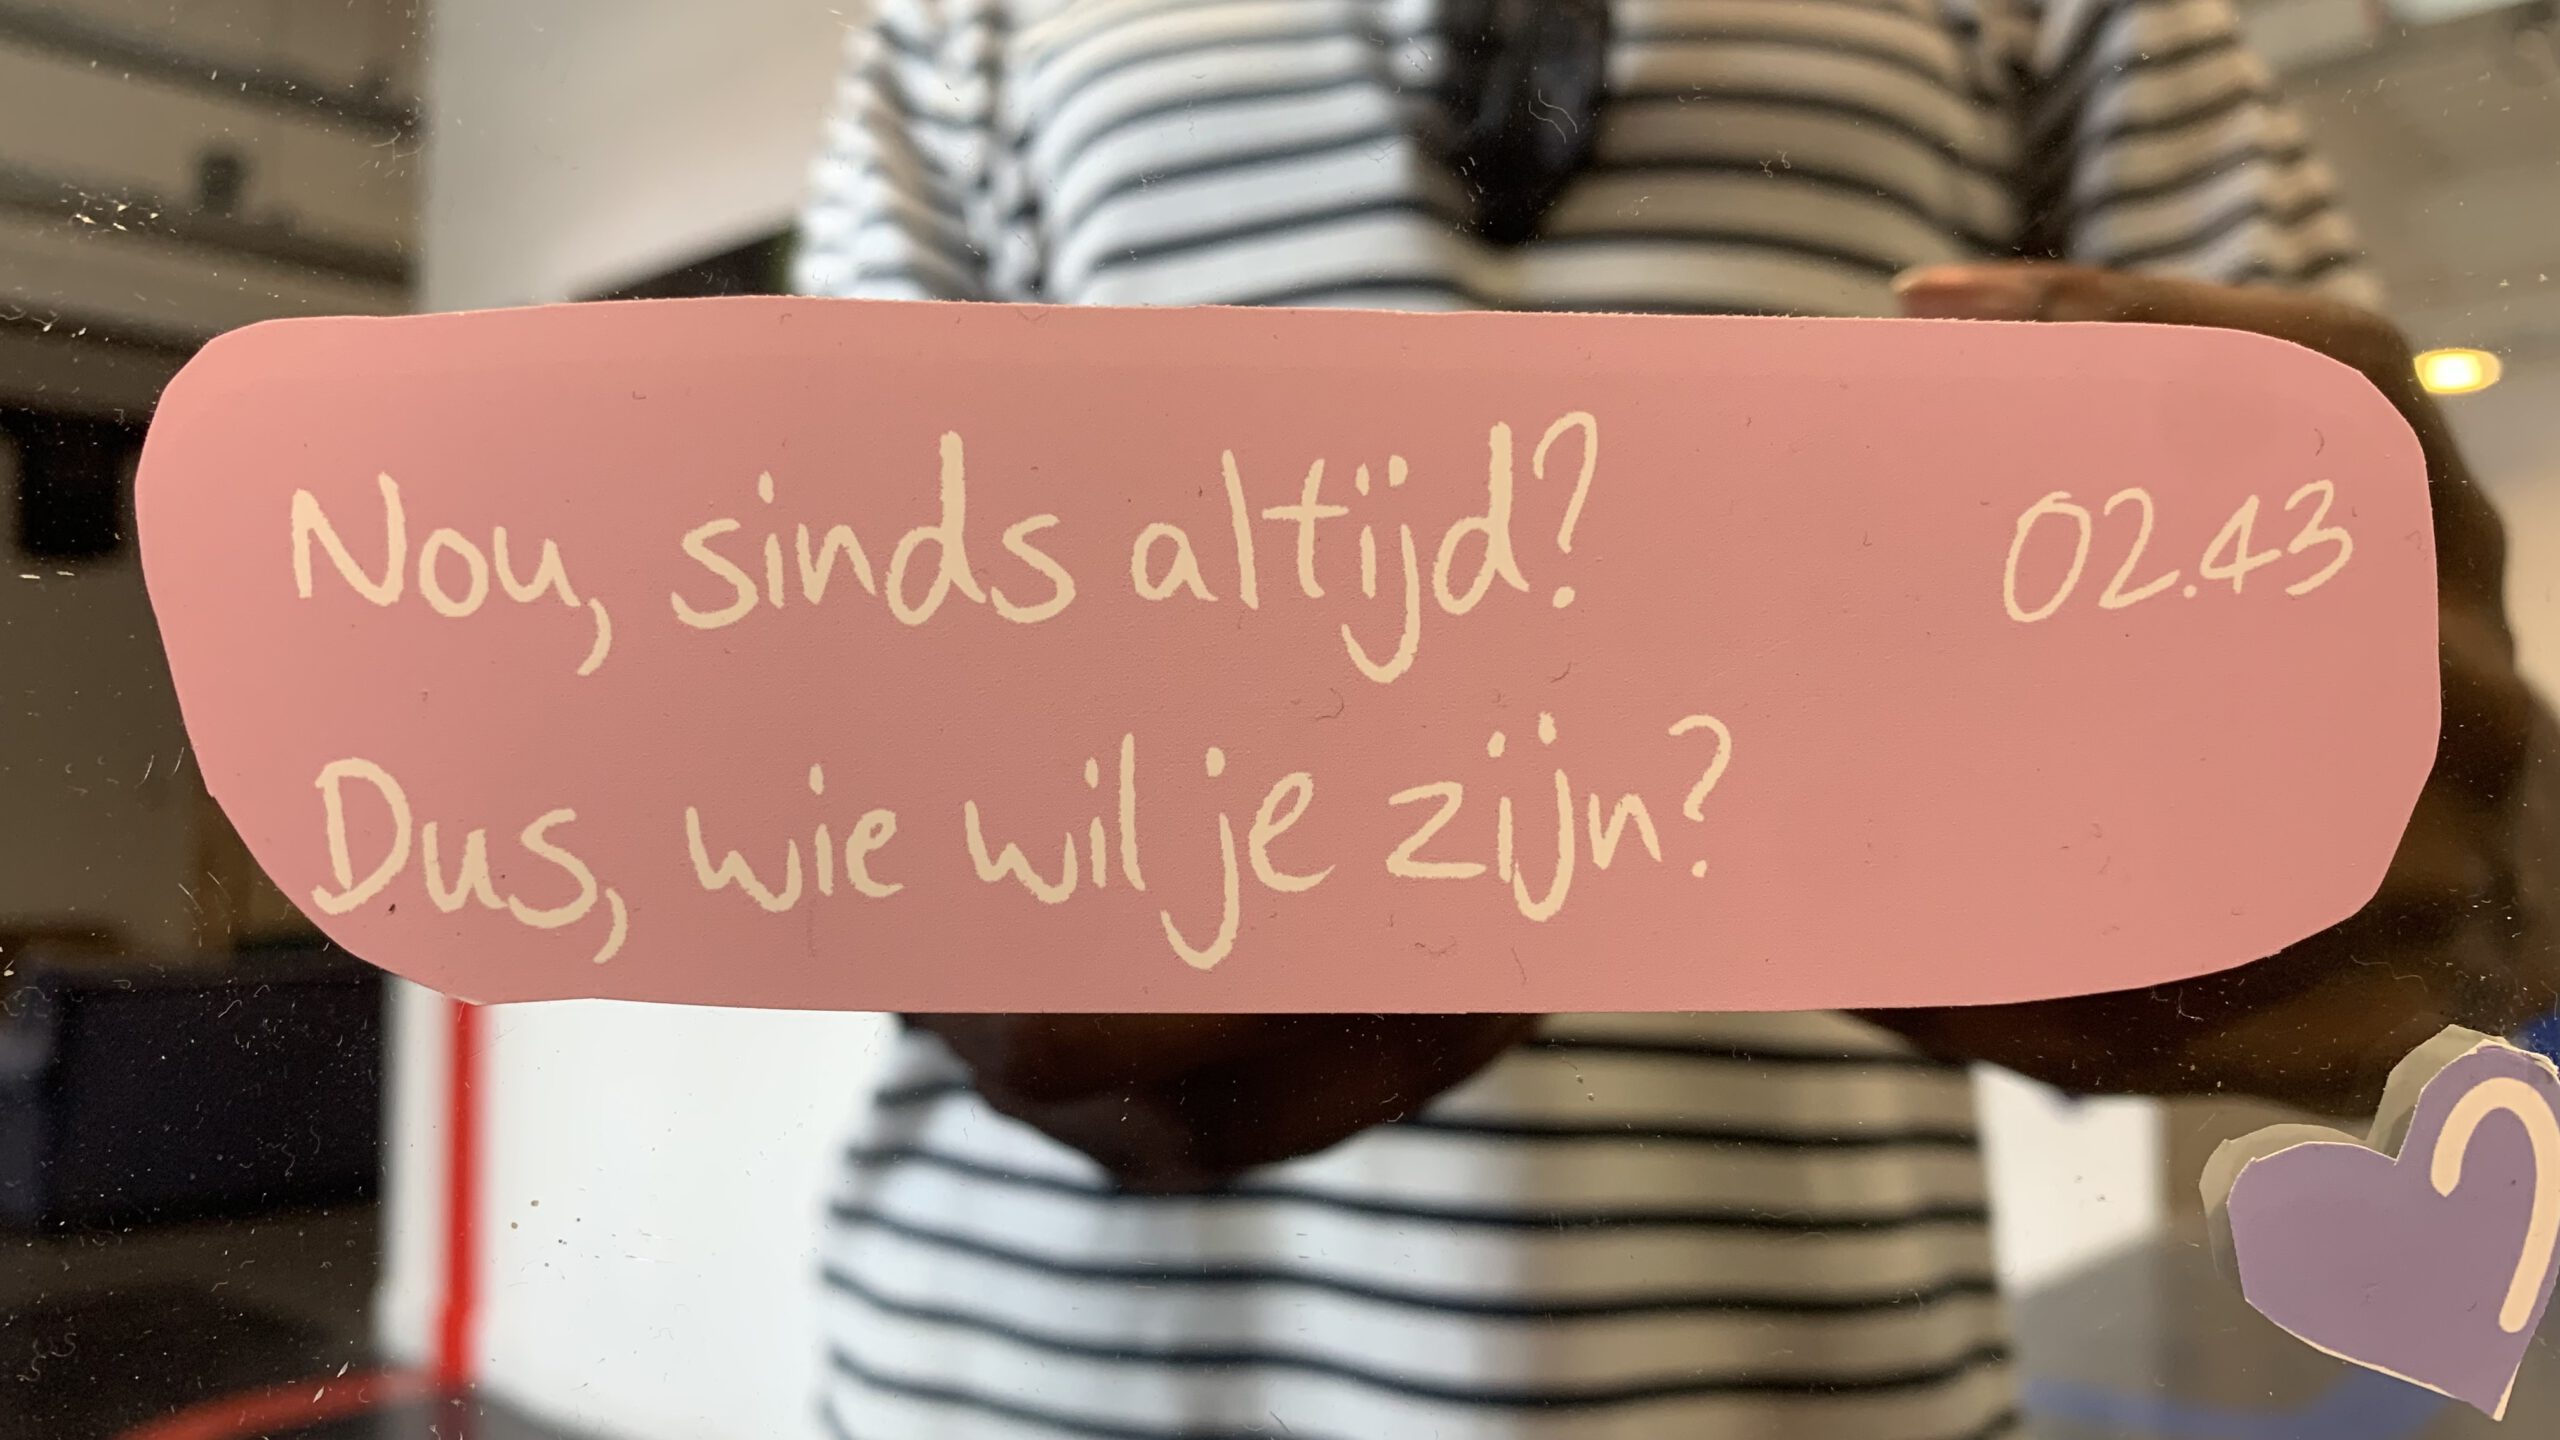 Nou, sinds altijd? 02.43
Dus, wie wil je zijn?